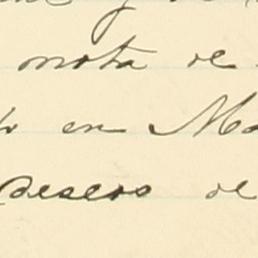 y
nota de
en Ma
deseos de